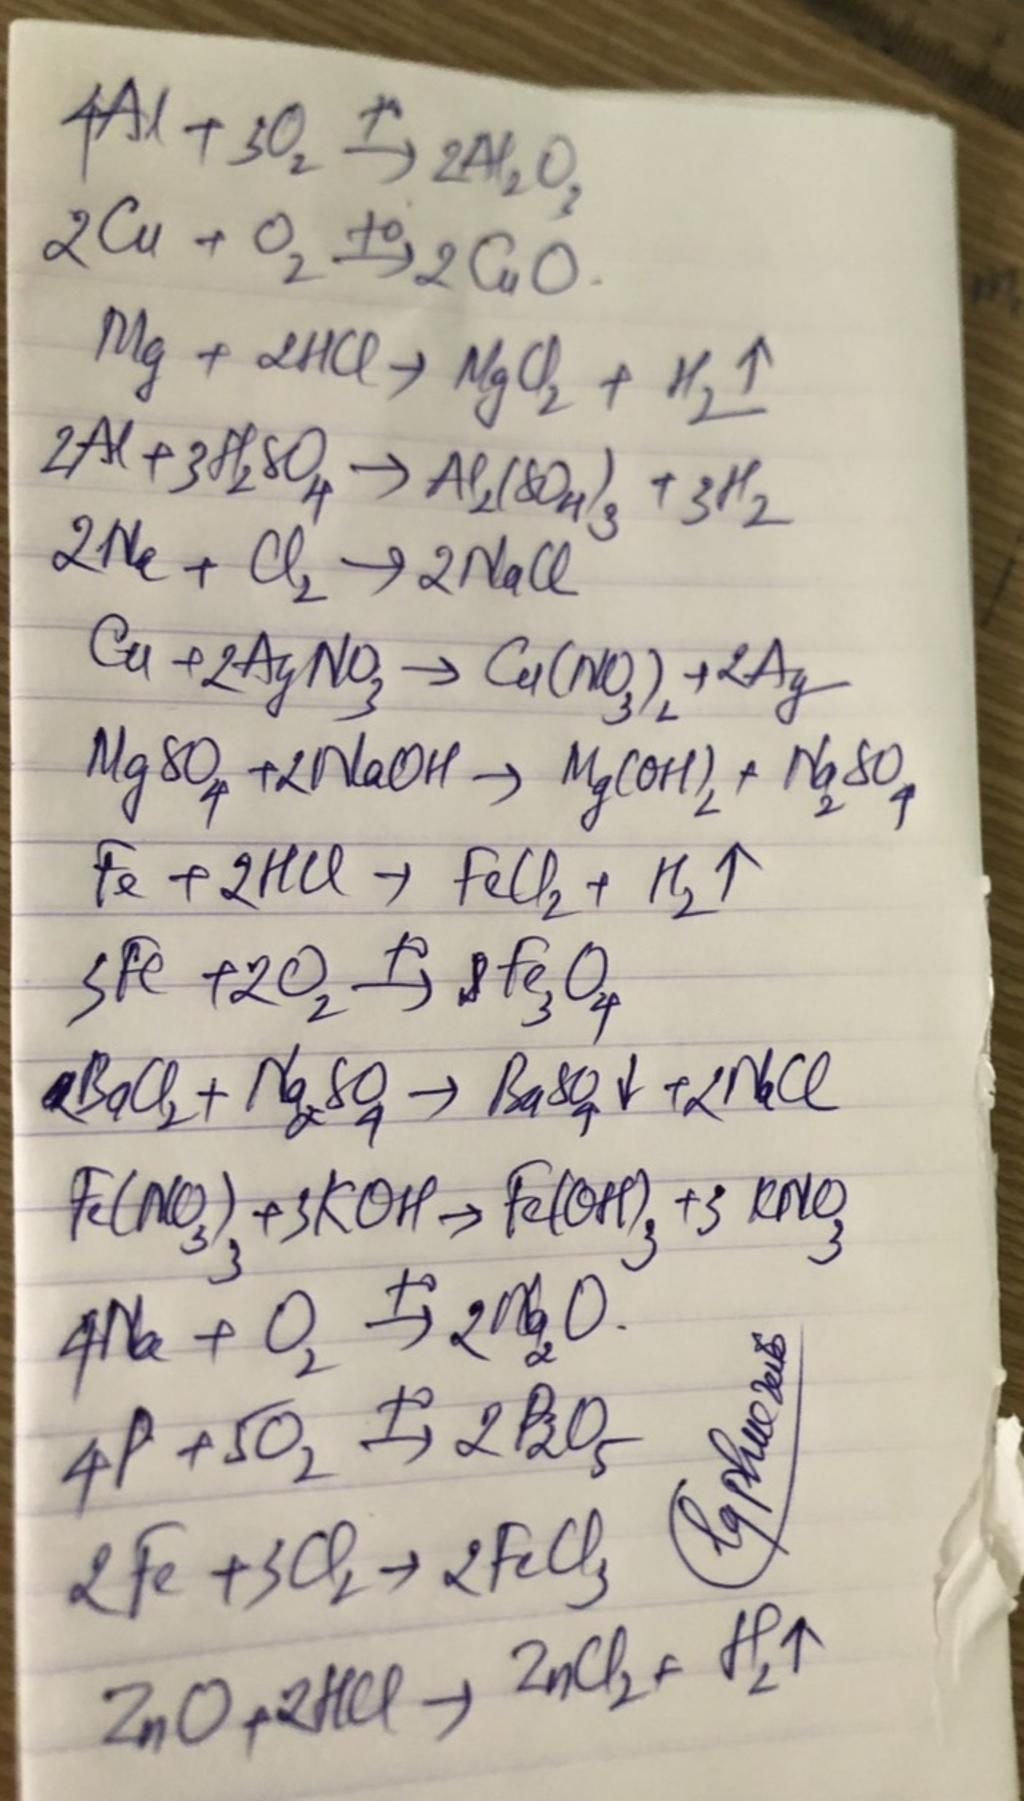 4Al + 3O₂ →(t°) 2Al₂O₃
2Cu + O₂ →(t°) 2CuO.
Mg + 2HCl → MgCl₂ + H₂↑
2Al + 3H₂SO₄ → Al₂(SO₄)₃ + 3H₂
2Na + Cl₂ → 2NaCl
Cu + 2AgNO₃ → Cu(NO₃)₂ + 2Ag
MgSO₄ + 2NaOH → Mg(OH)₂ + Na₂SO₄
Fe + 2HCl → FeCl₂ + H₂↑
3Fe + 2O₂ →(t°) Fe₃O₄
BaCl₂ + Na₂SO₄ → BaSO₄↓ + 2NaCl
Fe(NO₃)₃ + 3KOH → Fe(OH)₃ + 3KNO₃
4Na + O₂ →(t°) 2Na₂O.
4P + 5O₂ →(t°) 2P₂O₅
2Fe + 3Cl₂ → 2FeCl₃
ZnO + 2HCl → ZnCl₂ + H₂↑